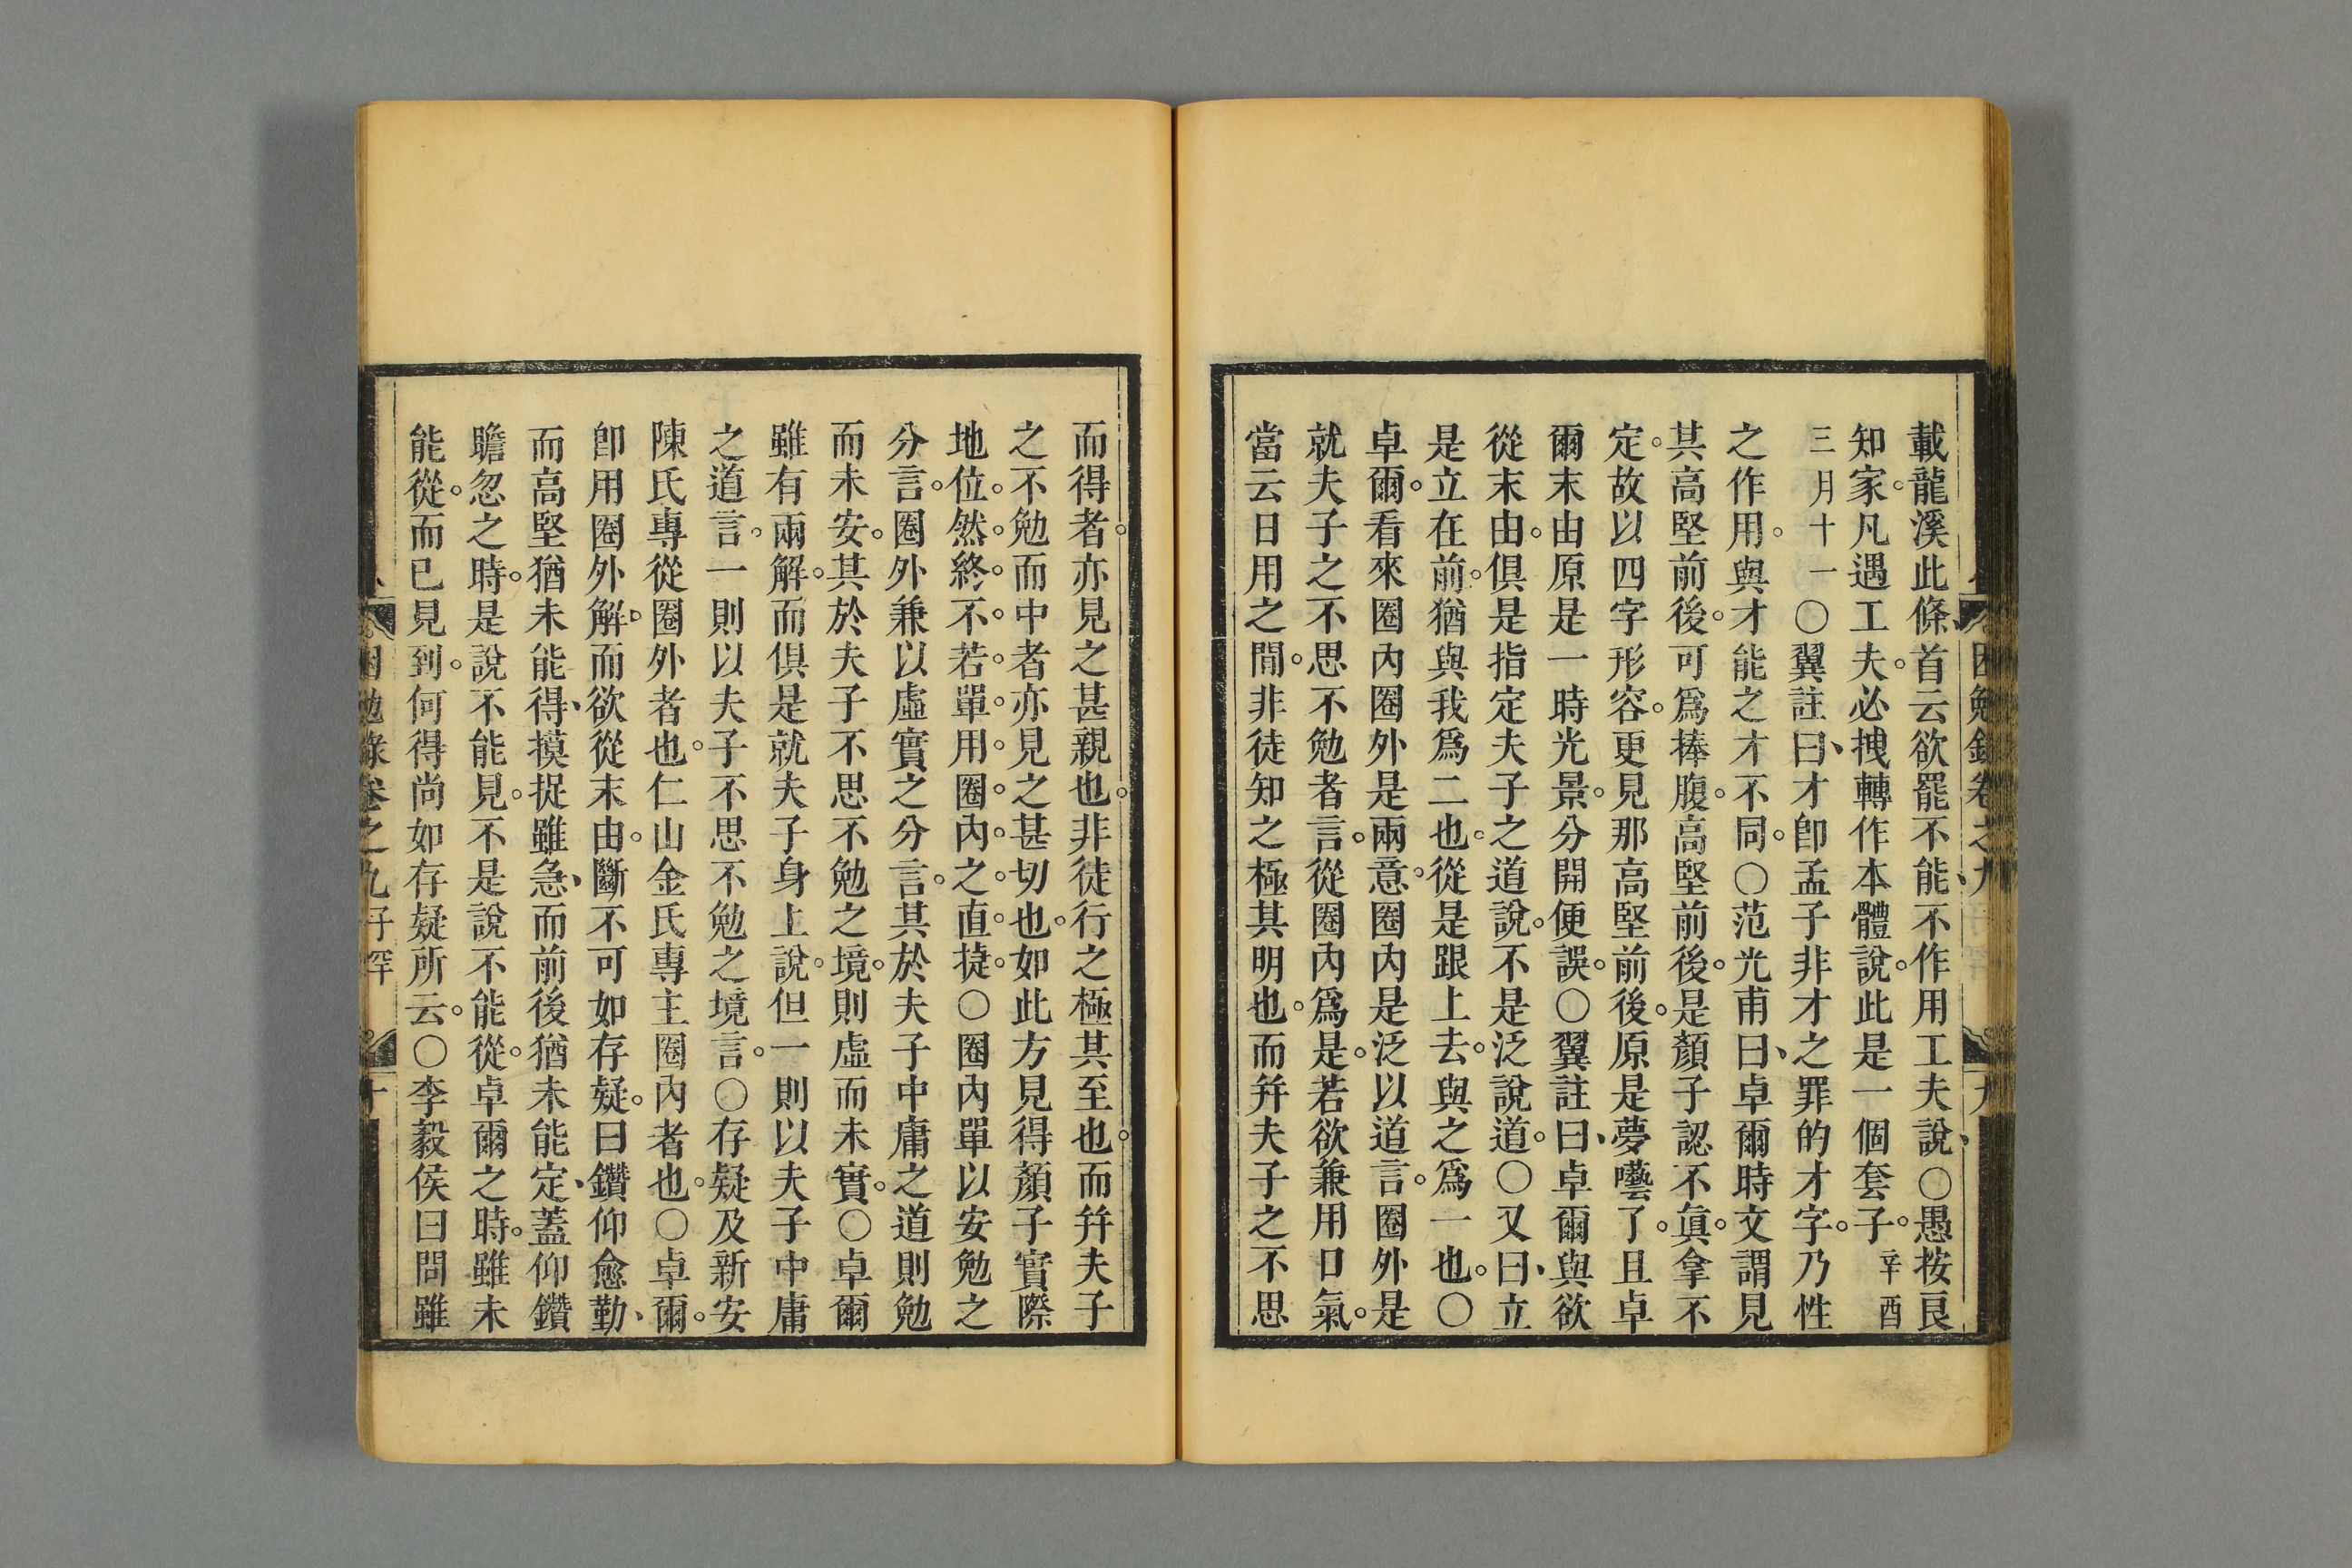 載龍溪此條、首云欲罷不能、不作用工夫說、○愚按良
知家。凡遇工夫。必拽轉作本體說。此是一個套子。辛酉
三月十一○翼註曰、才卽孟子非才之罪的才字。乃性
之作用。與才能之才不同。○范光甫曰、卓爾時文謂見
其高堅前後。可爲捧腹。高堅前後。是顏子認不眞。拿不
定。故以四字形容。更見那高堅前後。原是夢囈了。且卓
爾末由原是一時光景。分開便誤。○翼註曰、卓爾與欲
從末由。俱是指定夫子之道說。不是泛說道。○又曰、立
是立在前。猶與我爲二也。從是跟上去。與之爲一也。○
卓爾。看來圈內圈外是兩意。圈內是泛以道言。圈外是
就夫子之不思不勉者言。從圈內爲是。若欲兼用口氣。
當云日用之間。非徒知之極其明也。而幷夫子之不思
而得者。亦見之甚親也。非徒行之極其至也。而幷夫子
之不勉而中者亦見之甚切也。如此方見得顏子實際
地位。然。終。不。若。單。用。圈。內。之。直。捷。○圈內單以安勉之
分言。圈外兼以虛實之分言。其於夫子中庸之道則勉
而未安。其於夫子不思不勉之境。則虛而未實。○卓爾
雖有兩解。而俱是就夫子身上說。但一則以夫子中庸
之道言。一則以夫子不思不勉之境言。○存疑及新安
陳氏專從圈外者也。仁山金氏專主圈內者也。○卓爾。
卽用圈外解。而欲從末由。斷不可如存疑。曰鑽仰愈勤、
而高堅猶未能得、摸捉雖急、而前後猶未能定、蓋仰鑽
瞻忽之時。是說不能見。不是說不能從。卓爾之時。雖未
能從。而已見到。何得尚如存疑所云。○李毅侯曰問雖
困勉錄卷之九子罕 十